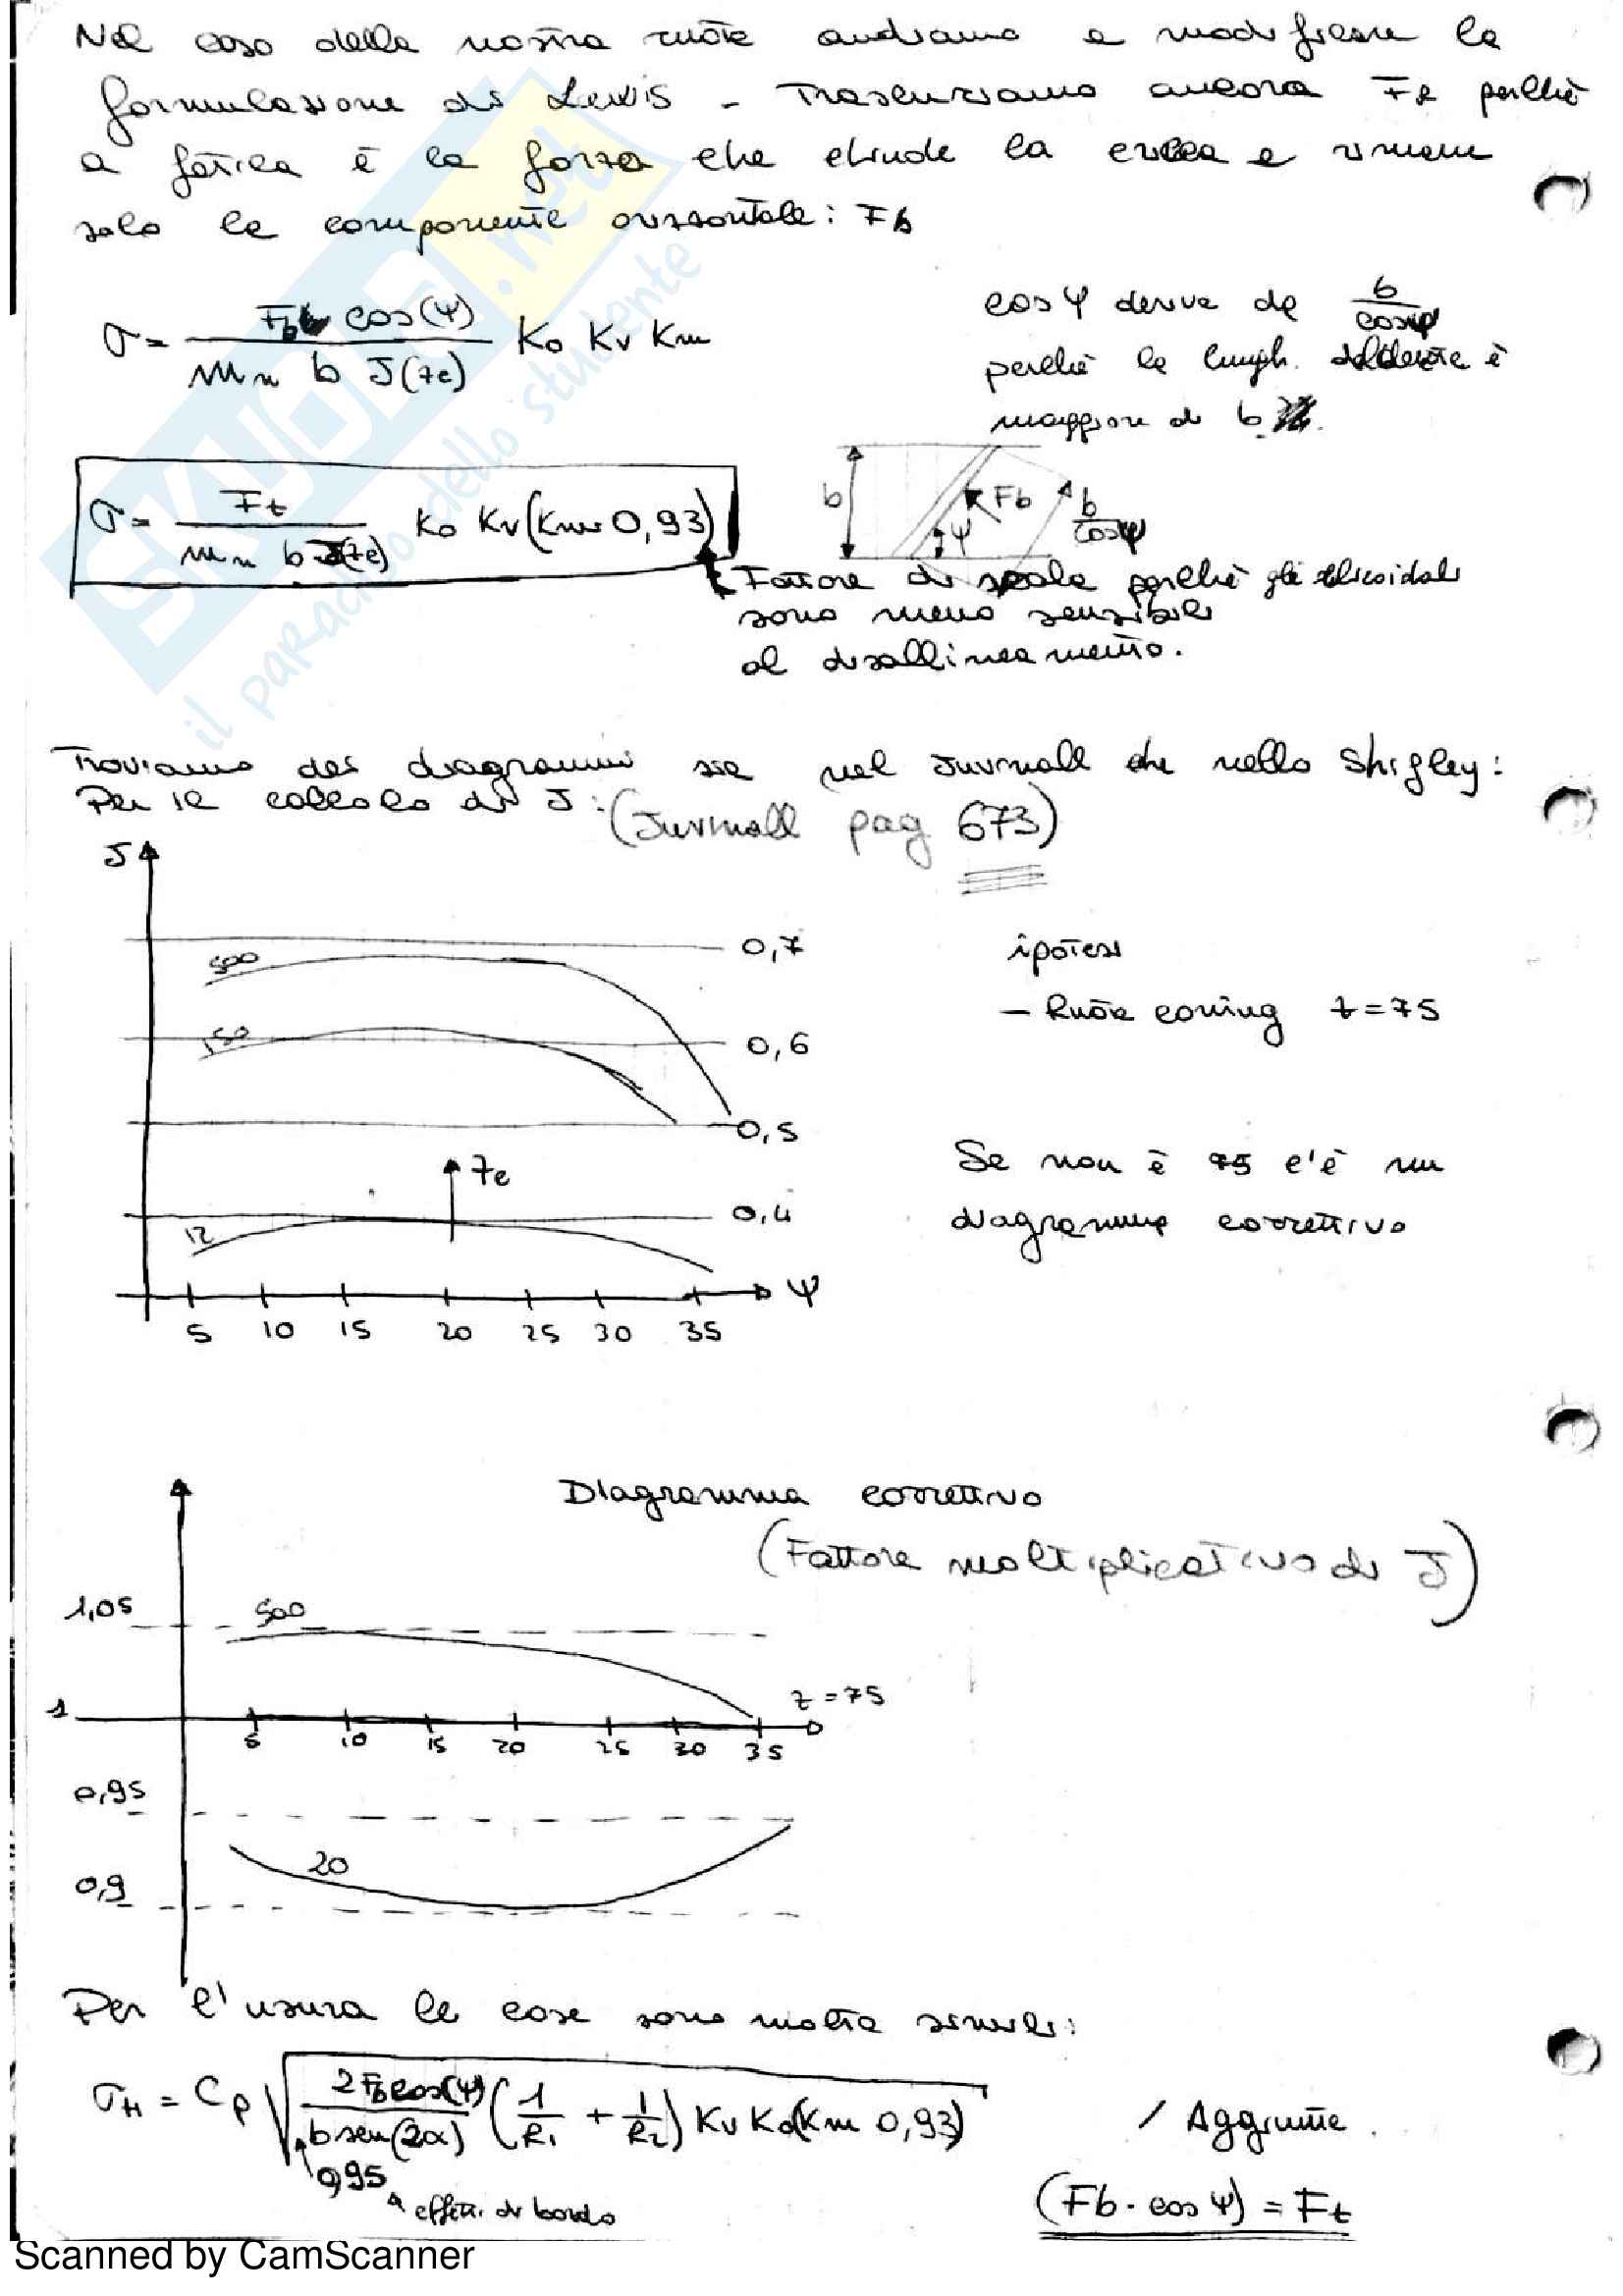 Nel caso delle nostre ruote andiamo a modificare la
formulazione di Lewis - Trascuriamo ancora Fr perchè
a fatica è la forza che chiude la cricca e rimane
solo la componente orizzontale: Fb
σ = Fb cos(ψ) / mn b J(ze) Ko Kv Km
cosψ deriva da b / cosψ
perchè la lungh. del dente è
maggiore di b
σ = Ft / mn b J(ze) Ko Kv (Km 0,93)
b
Fb
ψ
b / cosψ
Fattore di scala perchè gli elicoidali
sono meno sensibili
al disallineamento.
Troviamo dei diagrammi sia nel Juvinall che nello Shigley:
Per il calcolo di J: (Juvinall pag 673)
J
500
0,7
150
0,6
0,5
ze
12
0,4
ψ
5 10 15 20 25 30 35
ipotesi
- Ruota coniug z=75
Se non è 75 c'è un
diagramma correttivo
Diagramma correttivo
(Fattore moltiplicativo di J)
1,05
500
1
z=75
5 10 15 20 25 30 35
0,95
20
0,9
Per l'usura le cose sono molto simili:
σH = Cp √ 2Fb cos(ψ) / b sen(2α) (1/R1 + 1/R2) Kv Ko (Km 0,93)
0,95
effetti di bordo
/ Aggiunte
(Fb · cos ψ) = Ft
SKUOLA.net
il paradiso dello studente
Scanned by CamScanner